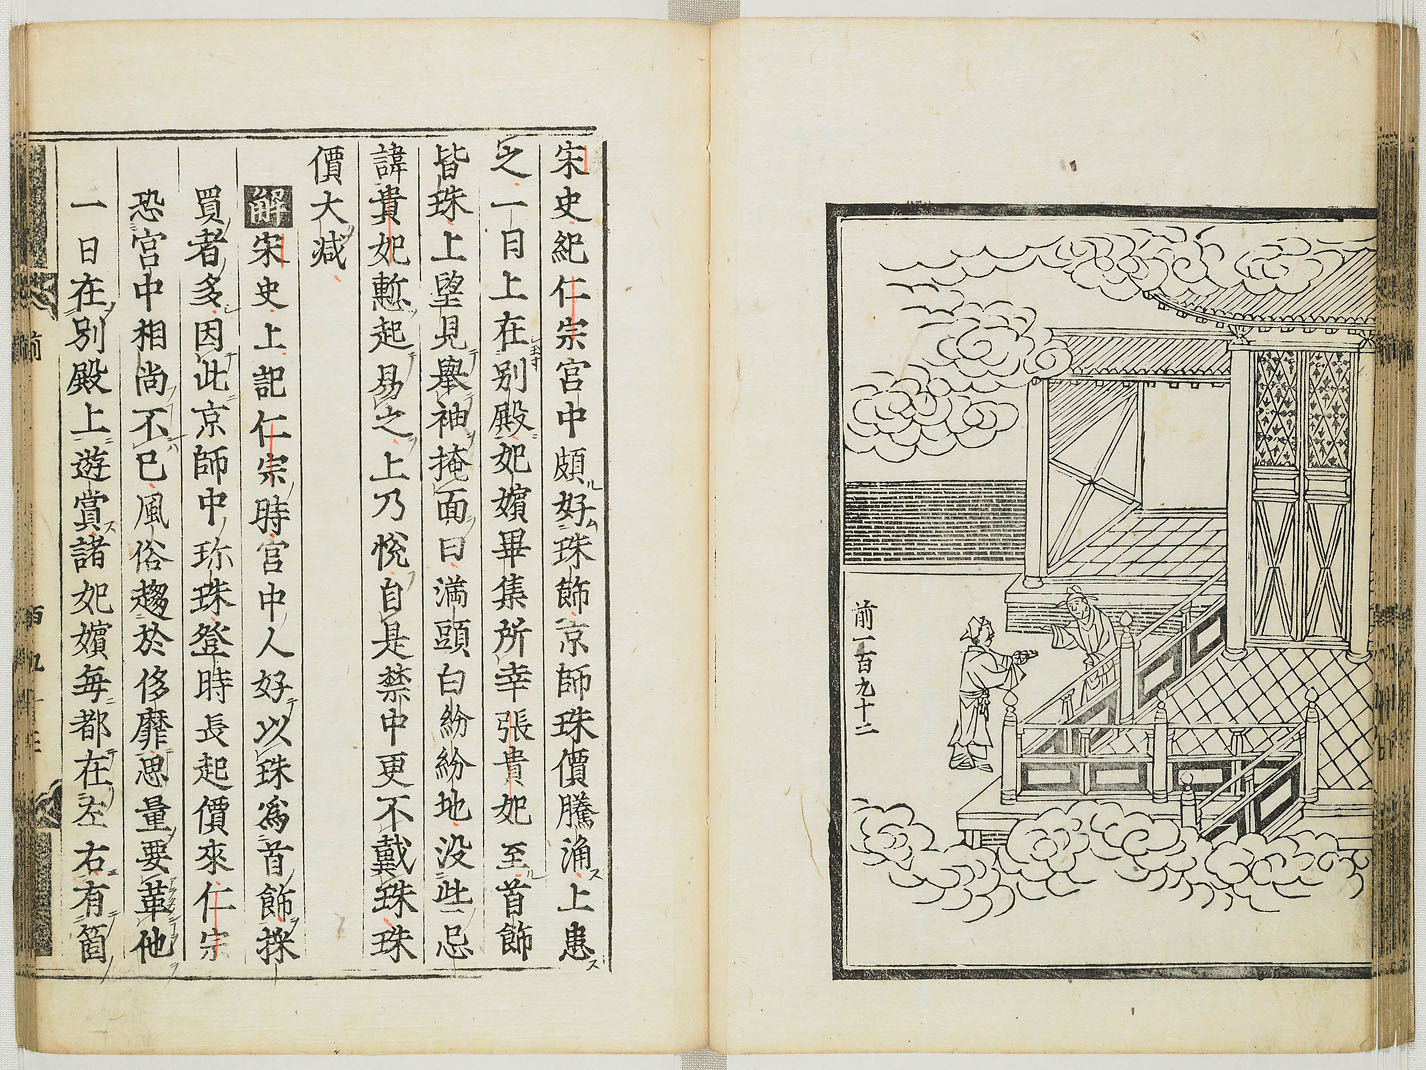 前一百九十二
宋史紀仁宗宮中頗好珠飾京師珠價騰涌上患
之一日上在別殿妃嬪畢集所幸張貴妃至首飾
皆珠上望見舉袖掩面曰滿頭白紛紛地没些忌
諱貴妃慙起易之上乃悅自是禁中更不戴珠珠
價大减
解宋史上記仁宗時宮中人好以珠爲首飾採
買者多因此京師中珎珠登時長起價來仁宗
恐宮中相尚不已風俗趨於侈靡思量要革他
一日在別殿上遊賞諸妃嬪每都在左右有箇
前